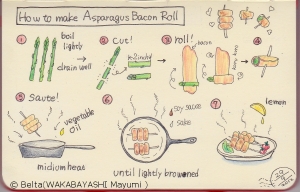 How to make Asparagus Bacon Roll
1
boil
lightly
drain well
2
Cut!
3
roll!
bacon
4
5
Saute!
vegetable
oil
midium heat
6
soy sauce
sake
until lightly browned
7
lemon
© Belta(WAKABAYASHI Mayumi )